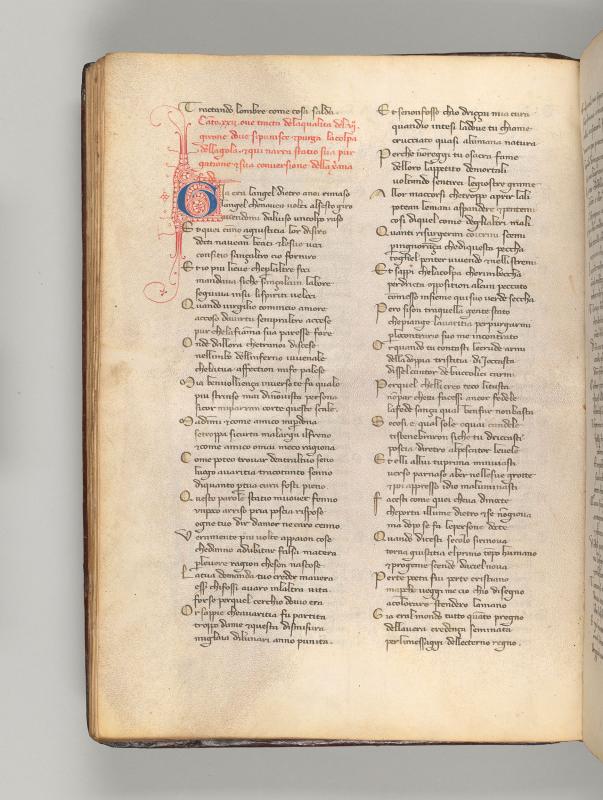 Tractando lombre come cosa salda.
Cato.xxii. oue tracta dela qualita del .vj.
girone doue si punisce & purga la colpa
della gola. & qui narra statio sua pur
gatione & sua conuersione della xp̄ana
Gia era langel dietro anoi rimaso
langel chinauea uolti alsesto giro
auendomi daluiso un colpo raso
Et quei cano agiustitia lor disiro
decti nauean beati & le sue uoci
con sitio sançaltro cio forniro
Et io piu lieue che p laltre foci
mandaua siche sençalcun labore
seguiua insu li spiriti ueloci
Quando uirgilio comincio amore
acceso di uirtu sempraltro accese
pur che la fiāma sua paresse fore
Onde dallora che tranoi discese
nellimbo dellinferno iuuenale
che la tua affection mi fe palese
Mia beniuoliença inuerso te fu quale
piu strinse mai di nonuista persona
sicor mi parran corte queste scale.
Ma dimi & come amico mi p̄dona
se troppa sicurta malarga ilfreno
& come amico omai meco ragiona
Come poteo trouar dentro altuo seno
luogo auaritia tra cotanto senno
di quanto p tua cura fosti pieno.
Queste parole statio mouer fenno
un poco arriso pria poscia rispose
ogne tuo dir damor me caro cenno
Veramente piu uolte appaion cose
che danno adubitar falsa matera
p le uere ragion che son nascose
La tua domanda tuo creder mauera
esser chifossi auaro in laltra uita
forse per quel cerchio douio era
Or sappie che auaritia fu partita
troppo dame & questa dismisura
migliaia di lunari anno punita.
Et se non fosse chio driççai mia cura
quando intesi ladoue tu chiame
crucciato quasi alumana natura
Perche non reggi tu osacra fame
delloro lappetito demortali
uoltando sentirei le giostre grame
Allor maccorsi che troppo aprir lali
potean le mani aspendere & pentemi
cosi di quel come degli altri mali
Quanti risurgeran coi crini scemi
p ignorança che di questa peccha
toglie il penter uiuendo & nelli stremi
Et sappi che la colpa che rimbeccha
per dritta opposition alcun peccato
con esso insieme qui suo uerde seccha
Pero sison tra quella gente stato
che piange lauaritia per purgarmi
p lo contrario suo me incontrato
Or quando tu cantasti lecrude armi
della doppia tristitia di Iocasta
disse il cantor de buccolici carmi
Per quel che clio teco li tasta
non par che ti facessi ancor fedele
la fede sança qual ben far non basta
Se cosi e qual sole o quai candele
ti stenebraron si che tu driççasti
poscia diretro alpescator le uele
Et elli allui tu prima minuiasti
uerso parnaso aber nelle sue grotte
& poi appresso idio maluminasti
Facesti come quei che ua di nocte
che porta illume dietro & se nō gioua
ma dopo se fa le persone docte
Quando dicesti secolo si rinoua
torna giustitia el primo tempo humano
& progenie scende da ciel noua
Per te poeta fui per te cristiano
ma pche ueggi me cio chio disegno
acolorare stendero lamano
Gia era il mondo tutto quanto pregno
della uera credença seminata
per li messaggi dellecterno regno.